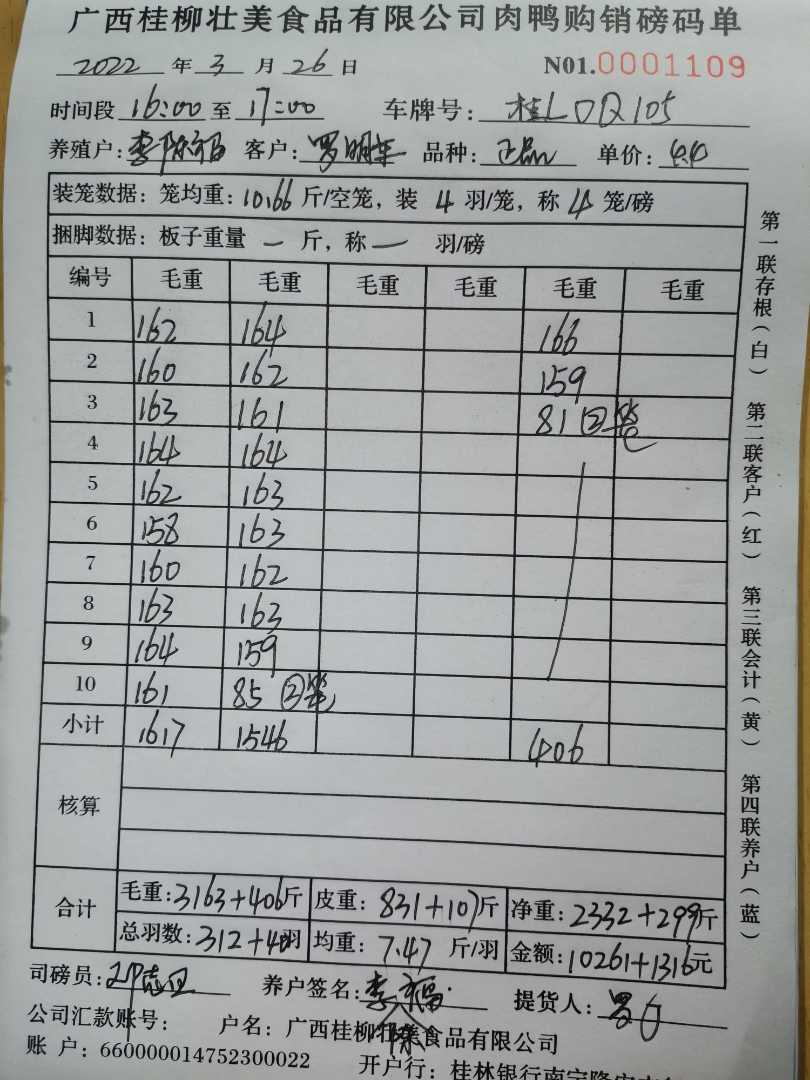 广西桂柳壮美食品有限公司肉鸭购销磅码单
2022 年 3 月 26 日 N01.0001109
时间段 16:00 至 17:00 车牌号: 桂L DQ105
养殖户: 李陈福 客户: 罗明 品种: 正品 单价: 4.4
装笼数据: 笼均重: 10.66 斤/空笼, 装 4 羽/笼, 称 4 笼/磅
捆脚数据: 板子重量 一 斤, 称 一 羽/磅
编号 毛重 毛重 毛重 毛重 毛重 毛重
1 162 164 166
2 160 162 159
3 163 161 81 ②笼
4 164 164
5 162 163
6 158 163
7 160 162
8 163 163
9 164 159
10 161 85 ②笼
小计 1617 1546 406
核算
合计 毛重: 3163+406斤 皮重: 831+107斤 净重: 2332+299斤
总羽数: 312+40羽 均重: 7.47 斤/羽 金额: 10261+1316元
司磅员: 养户签名: 李陈福 提货人: 罗
公司汇款账号: 户名: 广西桂柳壮美食品有限公司
账 户: 660000014752300022 开户行: 桂林银行南宁隆安
第一联存根(白) 第二联客户(红) 第三联会计(黄) 第四联养户(蓝)